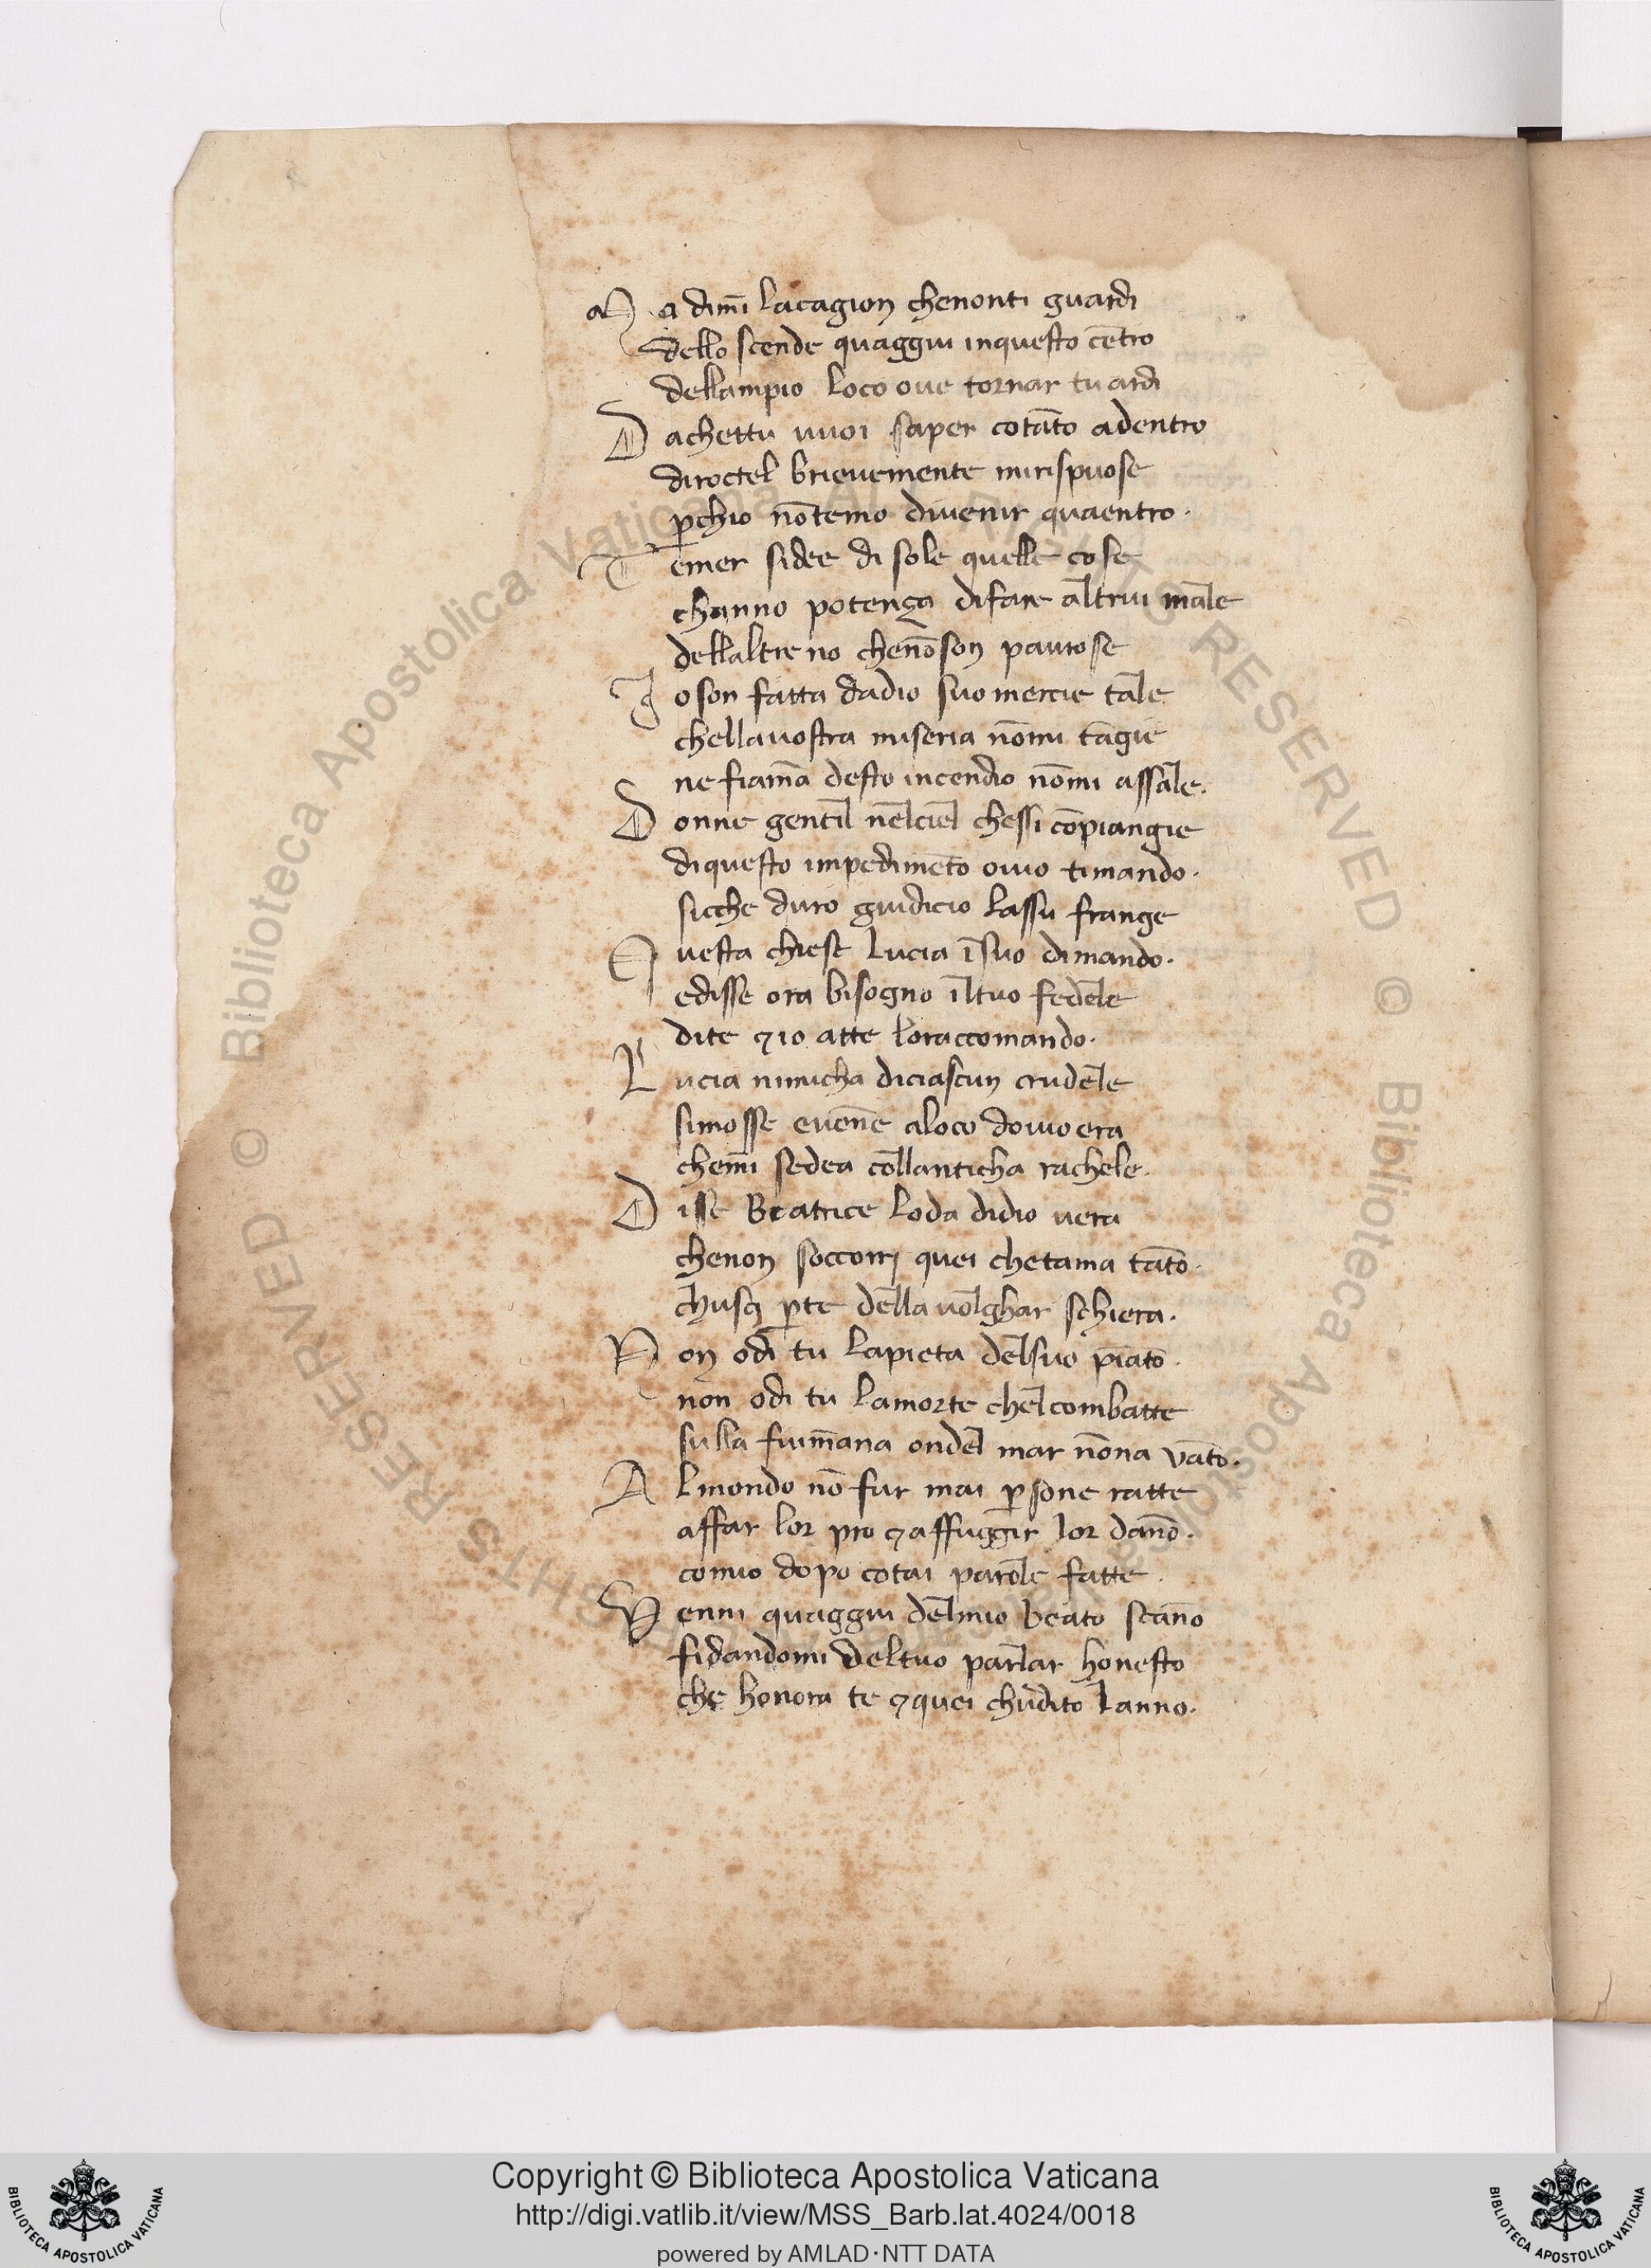 M a dim̄i lacagion chenonti guardi
dello scende quaggiu inquesto cētro
dellampio loco oue tornar tu ardi
D achettu uuoi saper cotāto adentro
diroctel brieuemente mirispuose
ꝑchio nōtemo diuenir quaentro.
T emer sidee di sole quelle cose
channo potença difare altrui male
dellaltre no chenōson paurose
I o son fatta dadio suo mercie tale
chellauostra miseria nōmi tāgie
ne fiam̄a desto incendio nōmi assale.
D onne gentil nelciel chessi cōpiangie
diquesto impedimēto ouio timando.
sicche duro giudicio lassu frange
Q uesta chiese lucia īsuo dimando.
edisse ora bisogno iltuo fedele
dite ⁊ io atte loraccomando.
L ucia nimicha diciascun crudele
simosse euen̄e aloco douio era
chem̄i sedea collanticha rachele.
D isse Beatrice loda didio uera
chenon soccorri quei chetama tāto.
chuscj ꝑte della uolghar schiera.
N on odi tu lapieta delsuo piāto.
non odi tu lamorte chelcombatte
sulla fium̄ana ondel mar nōna vāto.
A lmondo nō fur mai ꝑsone ratte
affar lor pro ⁊ affuggir lor dan̄o.
comio dopo cotai parole fatte.
V enni quaggiu delmio beato scan̄o
fidandomi deltuo parlar honesto
che honora te ⁊ quei chudito lanno.
© Biblioteca Apostolica Vaticana ALL RIGHTS RESERVED © Biblioteca Apostolica Vaticana ALL RIGHTS RESERVED
Copyright © Biblioteca Apostolica Vaticana
http://digi.vatlib.it/view/MSS_Barb.lat.4024/0018
powered by AMLAD·NTT DATA
BIBLIOTECA APOSTOLICA VATICANA
BIBLIOTECA APOSTOLICA VATICANA